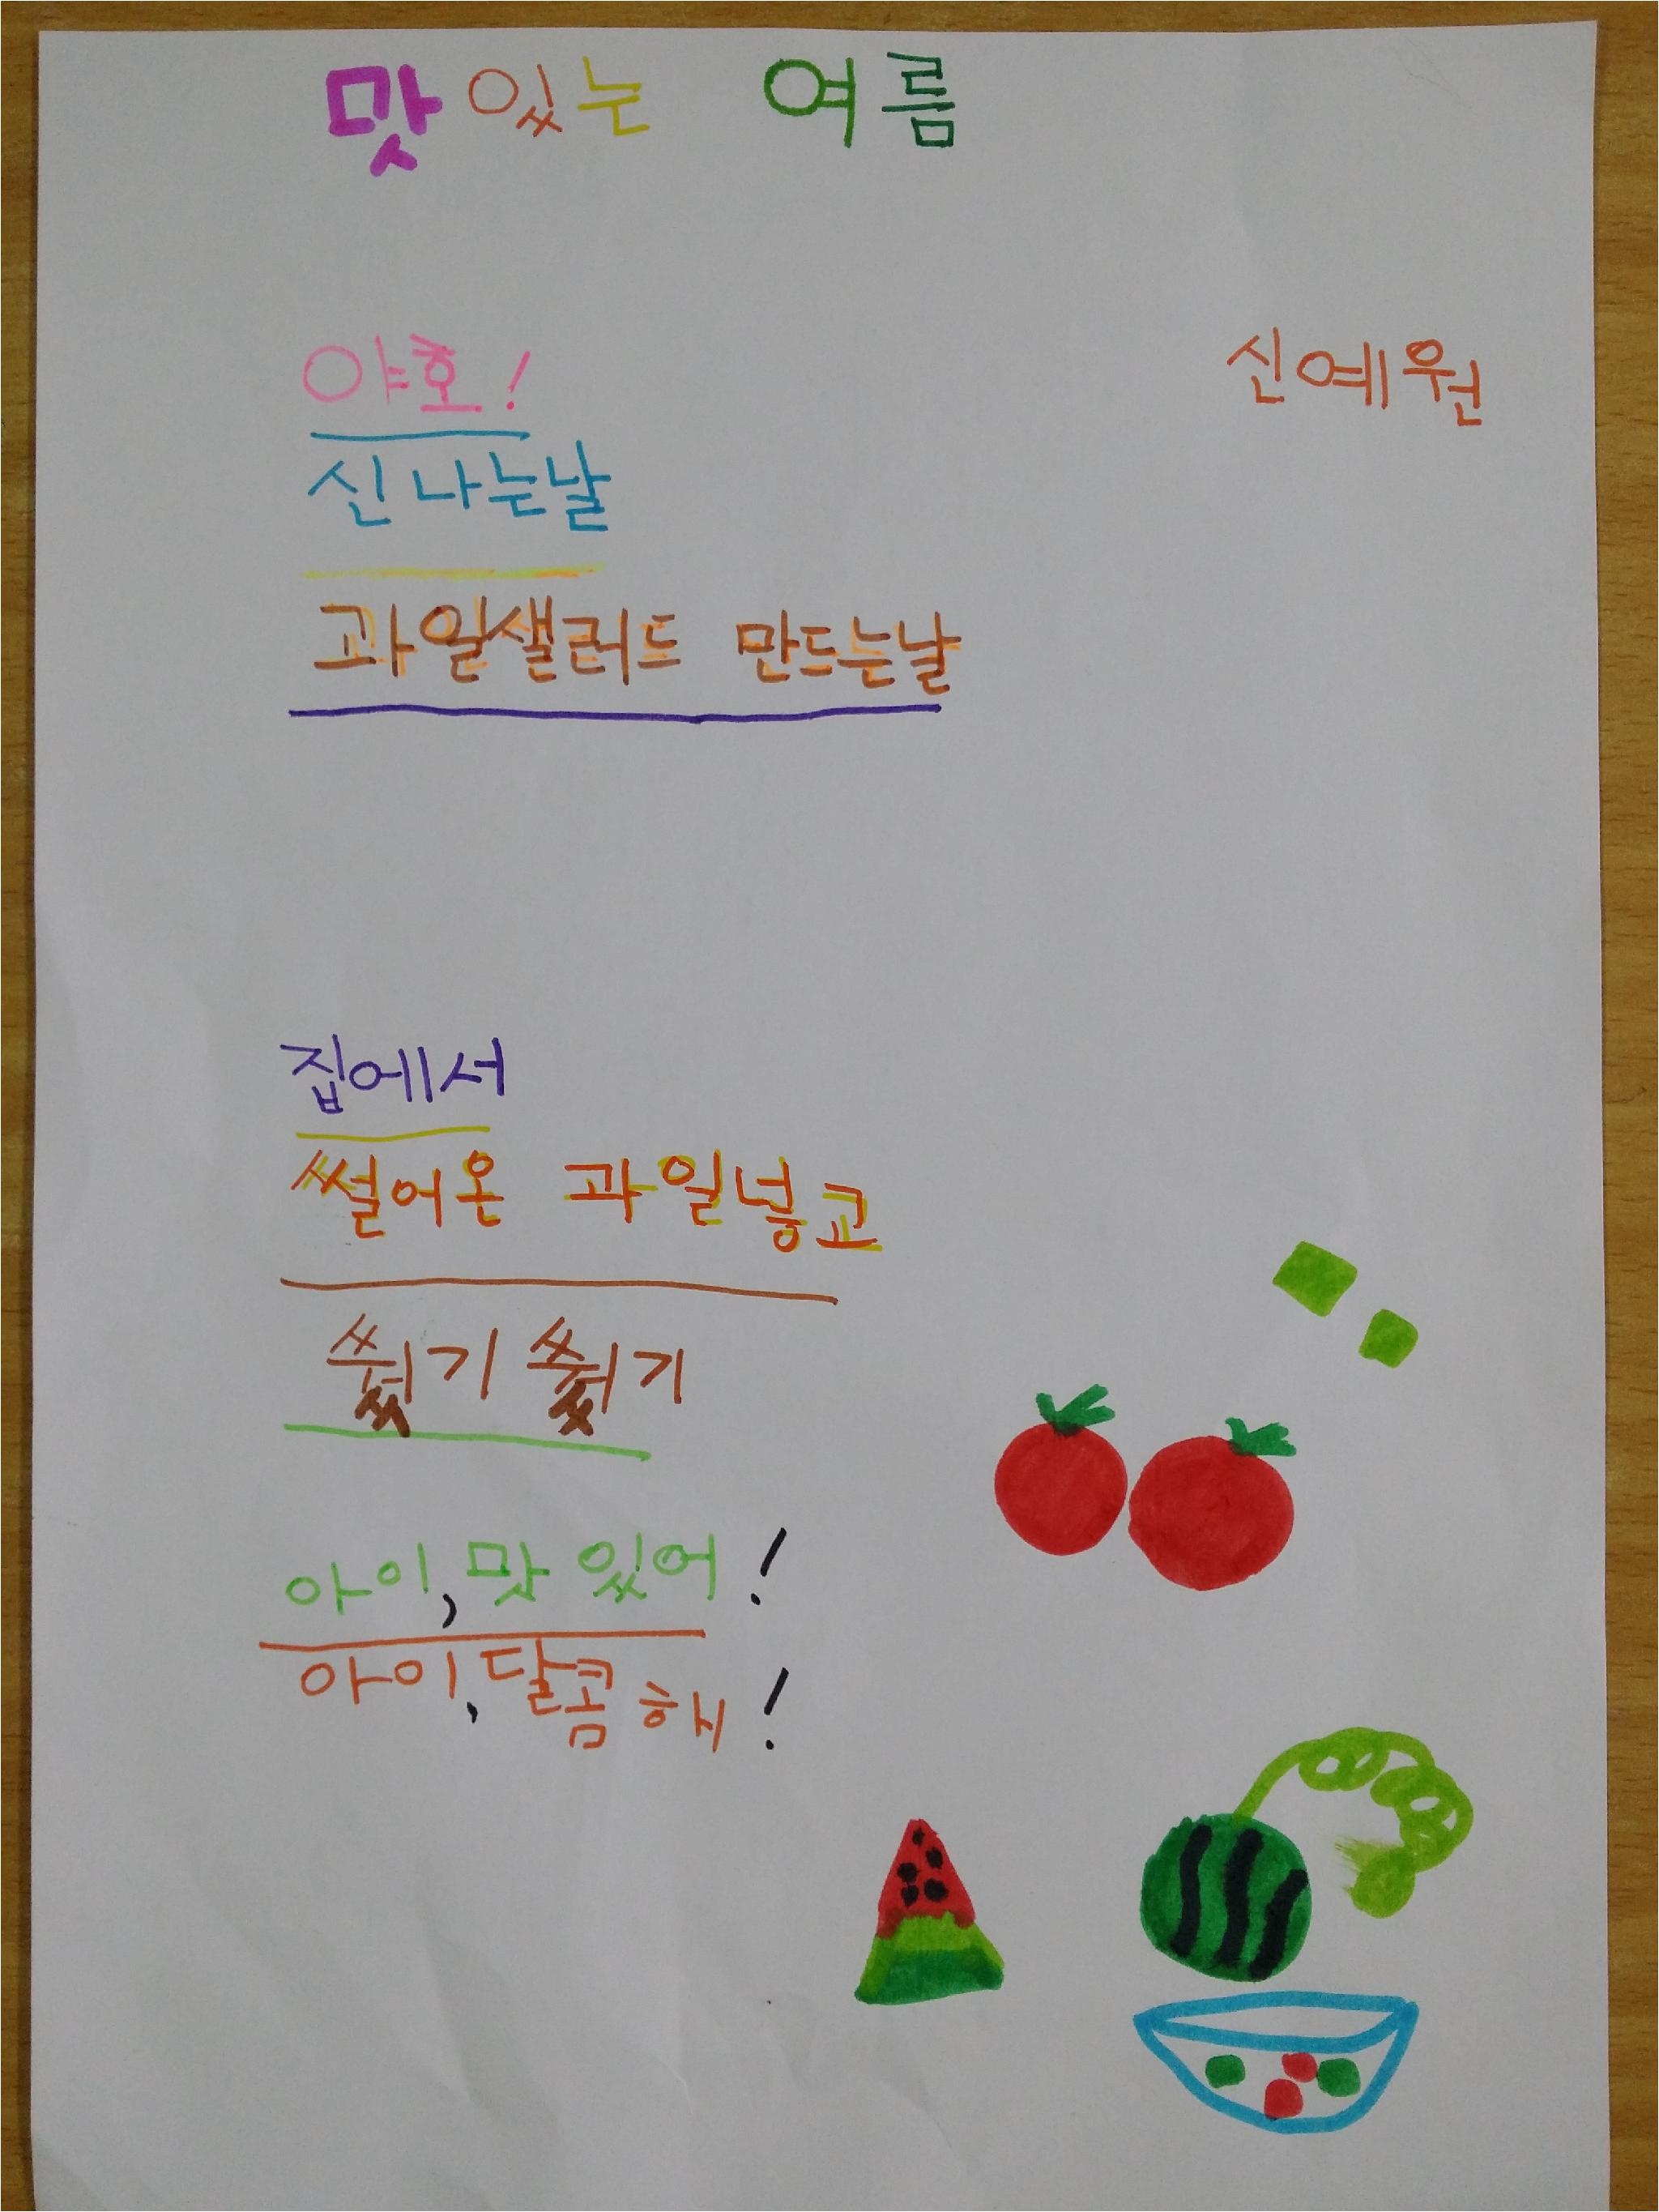 맛있는 여름
신예원
야호!
신나는날
과일샐러드 만드는날
집에서
썰어온 과일넣고
기 기
아이,맛있어!
아이,달콤해!